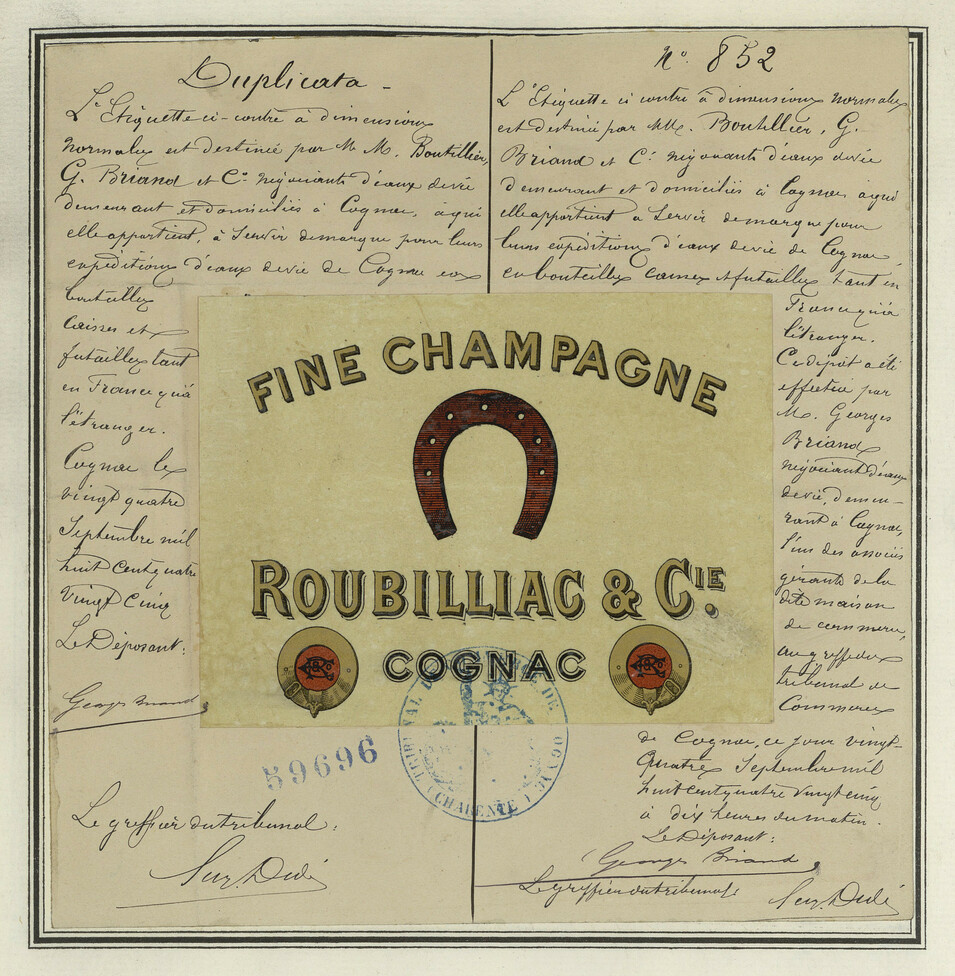 Duplicata -
L'Etiquette ci-contre à dimensions
normales est destinée par M. M. Boutillier,
G. Briand et Cie négociants d'eaux de vie
demeurant et domiciliés à Cognac, à qui
elle appartient, à servir de marque pour leurs
expéditions d'eaux de vie de Cognac en
bouteilles
caisses et
futailles tant
en France qu'à
l'étranger.
Cognac le
vingt quatre
Septembre mil
huit cent quatre
vingt cinq
Le Déposant:
Georges Briand
Le greffier du tribunal:
No. 852
L'Etiquette ci contre à dimensions normales
est destinée par MM. Boutillier, G.
Briand et Cie négociants d'eaux de vie
demeurant et domiciliés à Cognac à qui
elle appartient à servir de marque pour
leurs expéditions d'eaux de vie de Cognac
en bouteilles caisses et futailles tant en
France qu'à
l'étranger.
Ce dépôt a été
effectué par
M. Georges
Briand
négociant d'eaux
de vie, demeu-
rant à Cognac,
l'un des associés
gérants de la
dite maison
de commerce,
au greffe du
tribunal de
Commerce
de Cognac, ce jour vingt-
quatre Septembre mil
huit cent quatre vingt cinq
à dix heures du matin.
Le Déposant:
Georges Briand
Le greffier du tribunal
FINE CHAMPAGNE
ROUBILLIAC & CIE.
COGNAC
TRIBUNAL DE COMMERCE DE COGNAC
(CHARENTE)
59696